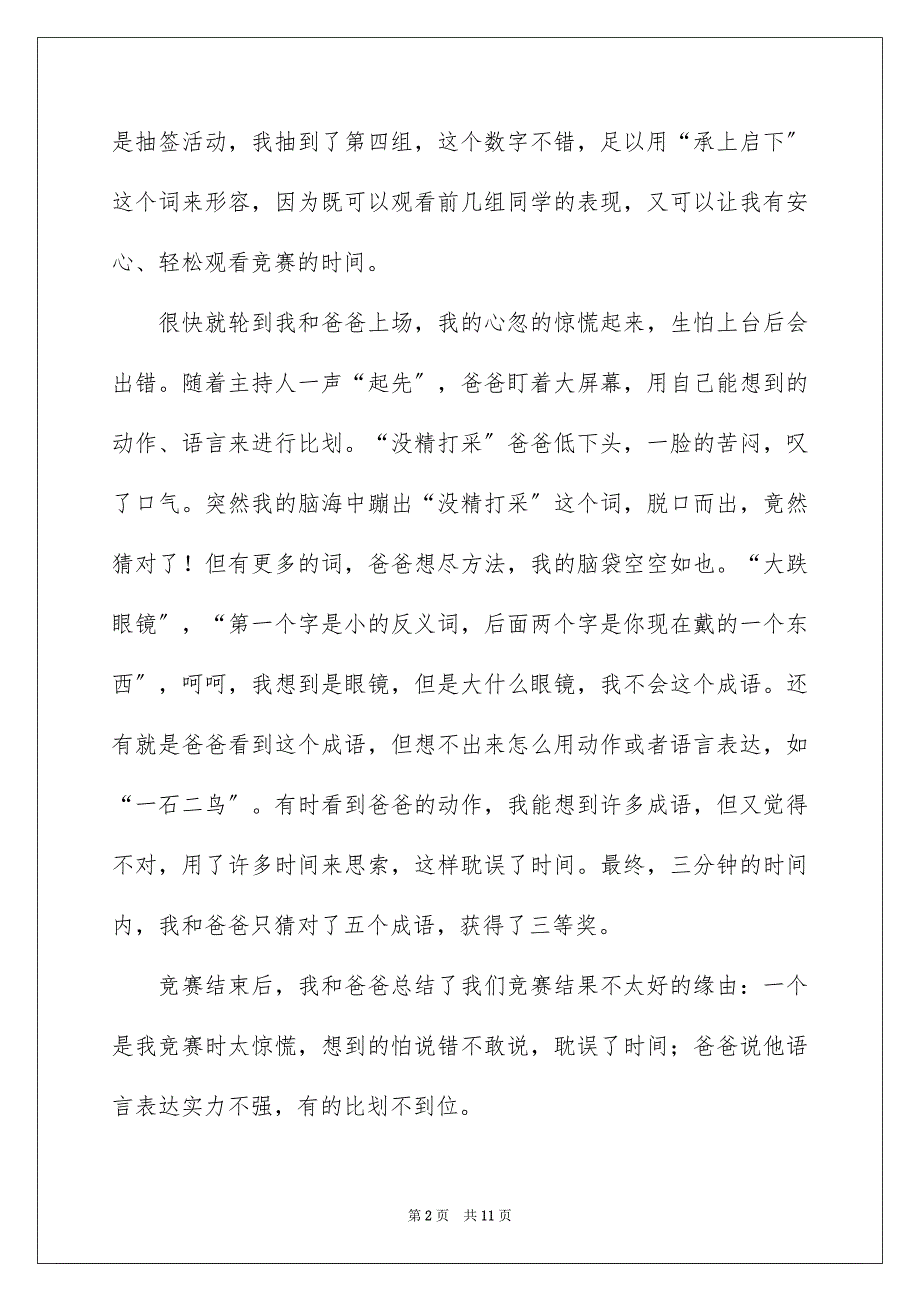 是抽签活动，我抽到了第四组，这个数字不错，足以用“承上启下〞
这个词来形容，因为既可以观看前几组同学的表现，又可以让我有安
心、轻松观看竞赛的时间。
很快就轮到我和爸爸上场，我的心忽的惊慌起来，生怕上台后会
出错。随着主持人一声“起先〞，爸爸盯着大屏幕，用自己能想到的
动作、语言来进行比划。“没精打采〞爸爸低下头，一脸的苦闷，叹
了口气。突然我的脑海中蹦出“没精打采〞这个词，脱口而出，竟然
猜对了！但有更多的词，爸爸想尽方法，我的脑袋空空如也。“大跌
眼镜〞，“第一个字是小的反义词，后面两个字是你现在戴的一个东
西〞，呵呵，我想到是眼镜，但是大什么眼镜，我不会这个成语。还
有就是爸爸看到这个成语，但想不出来怎么用动作或者语言表达，如
“一石二鸟〞。有时看到爸爸的动作，我能想到许多成语，但又觉得
不对，用了许多时间来思索，这样耽误了时间。最终，三分钟的时间
内，我和爸爸只猜对了五个成语，获得了三等奖。
竞赛结束后，我和爸爸总结了我们竞赛结果不太好的缘由：一个
是我竞赛时太惊慌，想到的怕说错不敢说，耽误了时间；爸爸说他语
言表达实力不强，有的比划不到位。
第 2 页 共 11 页